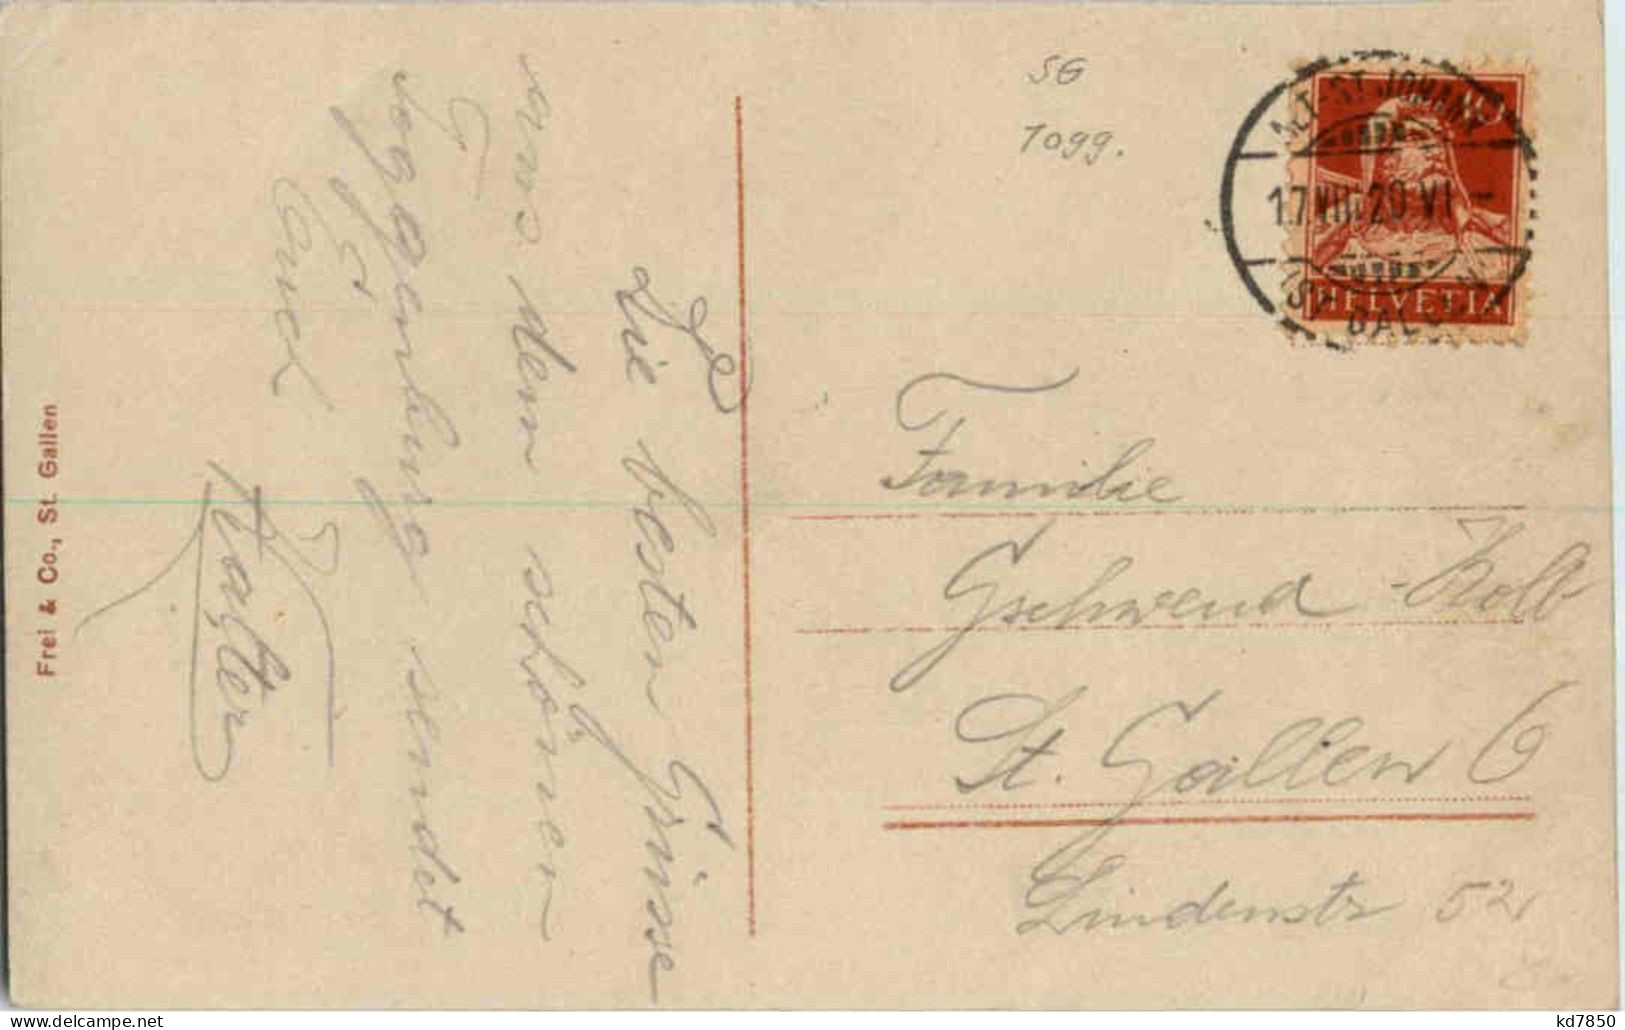 SG
Togg.
ALT-ST. JOHANN
17.VIII.20.VI-
(ST. GALLEN)
HELVETIA
Die besten Grüsse
aus dem schönen
Toggenburg sendet
Euch
Walter
Familie
Gschwend-Kolb
St. Gallen 6
Lindenstr 52
Frei & Co., St. Gallen
kd7850